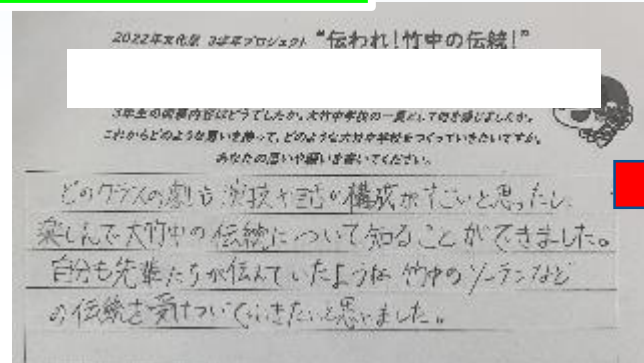 2022年文化祭 3学年プロジェクト “伝われ！竹中の伝統！”
3年生の演技内容はどうでしたか。大竹中学校の一員として何を感じましたか。
これからどのような思いを持って、どのような大竹中学校をつくっていきたいですか。
あなたの思いや願いを書いてください。
どのクラスの劇も演技や話の構成がすごいと思ったし、
楽しんで大竹中の伝統について知ることができました。
自分も先輩たちが伝えていたような竹中のソーランなど
の伝統を受けついでいきたいと思いました。